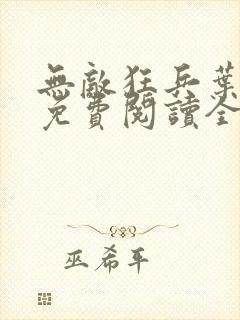 無敵狂兵葉
免費閱讀全
巫希平